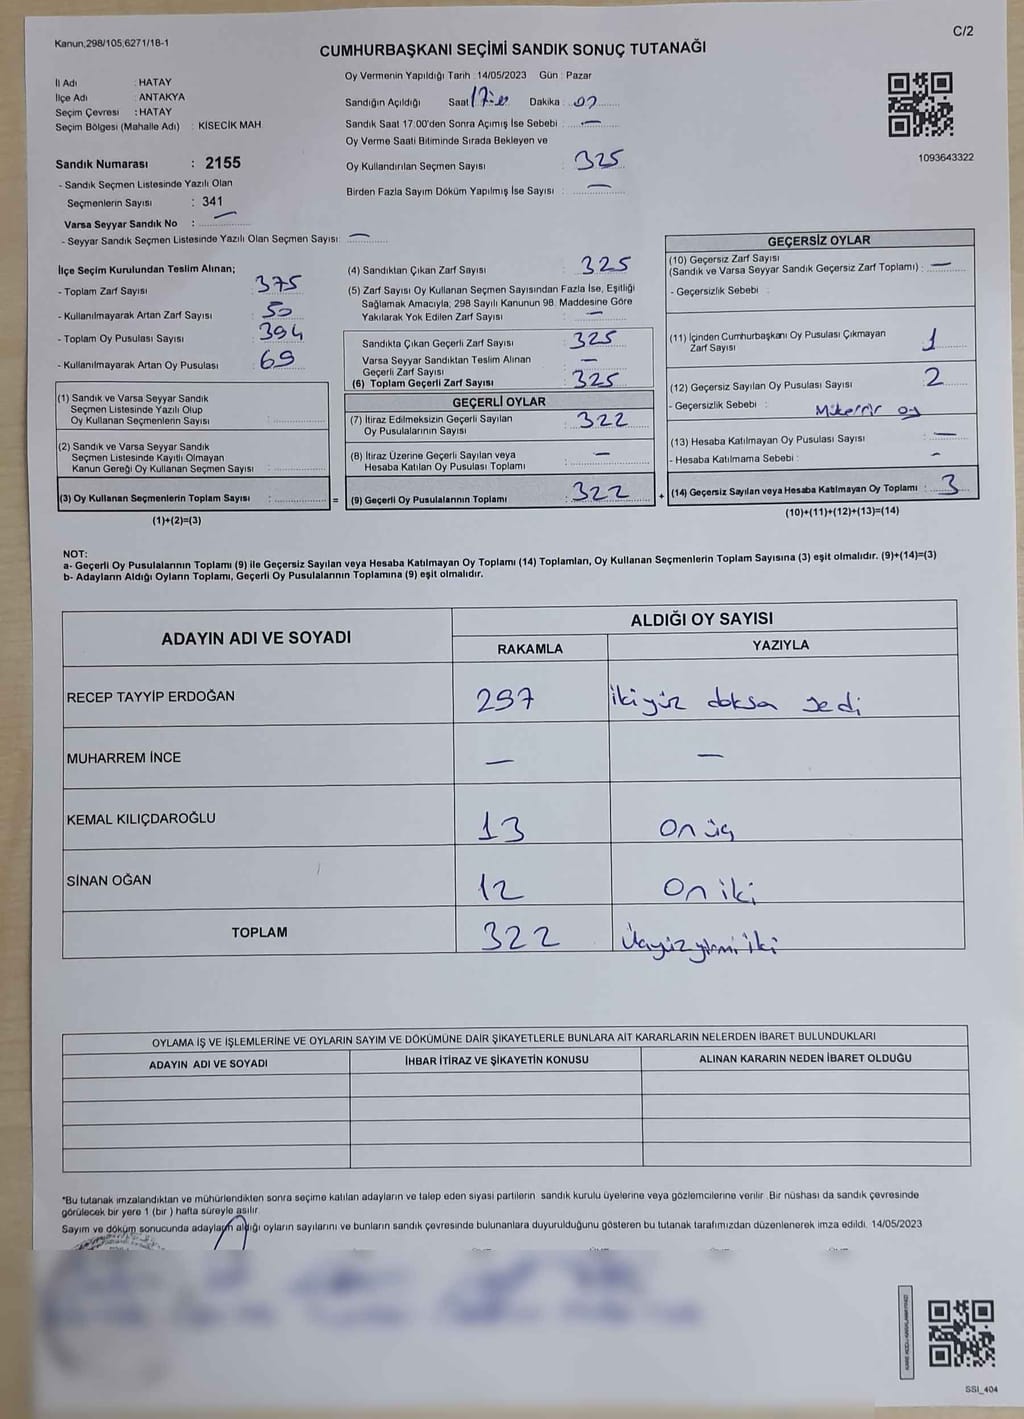 Kanun,298/105,6271/18-1
C/2
CUMHURBAŞKANI SEÇİMİ SANDIK SONUÇ TUTANAĞI
İl Adı : HATAY
İlçe Adı : ANTAKYA
Seçim Çevresi : HATAY
Seçim Bölgesi (Mahalle Adı) : KİSECİK MAH.
Oy Vermenin Yapıldığı Tarih : 14/05/2023 Gün : Pazar
Sandığın Açıldığı Saat Dakika
Sandık Saat 17.00'den Sonra Açımış İse Sebebi : —
Oy Verme Saati Bitiminde Sırada Bekleyen ve
Oy Kullandırılan Seçmen Sayısı : 325
Birden Fazla Sayım Döküm Yapılmış İse Sayısı : —
1093643322
Sandık Numarası : 2155
- Sandık Seçmen Listesinde Yazılı Olan
Seçmenlerin Sayısı : 341
Varsa Seyyar Sandık No : —
- Seyyar Sandık Seçmen Listesinde Yazılı Olan Seçmen Sayısı: —
İlçe Seçim Kurulundan Teslim Alınan;
- Toplam Zarf Sayısı : 375
- Kullanılmayarak Artan Zarf Sayısı : 50
- Toplam Oy Pusulası Sayısı : 394
- Kullanılmayarak Artan Oy Pusulası : 69
(1) Sandık ve Varsa Seyyar Sandık
Seçmen Listesinde Yazılı Olup
Oy Kullanan Seçmenlerin Sayısı :
(2) Sandık ve Varsa Seyyar Sandık
Seçmen Listesinde Kayıtlı Olmayan
Kanun Gereği Oy Kullanan Seçmen Sayısı :
(3) Oy Kullanan Seçmenlerin Toplam Sayısı :
(1)+(2)=(3)
(4) Sandıktan Çıkan Zarf Sayısı : 325
(5) Zarf Sayısı Oy Kullanan Seçmen Sayısından Fazla İse, Eşitliği
Sağlamak Amacıyla, 298 Sayılı Kanunun 98. Maddesine Göre
Yakılarak Yok Edilen Zarf Sayısı : —
Sandıkta Çıkan Geçerli Zarf Sayısı : 325
Varsa Seyyar Sandıktan Teslim Alınan
Geçerli Zarf Sayısı : —
(6) Toplam Geçerli Zarf Sayısı : 325
GEÇERLİ OYLAR
(7) İtiraz Edilmeksizin Geçerli Sayılan
Oy Pusulalarının Sayısı : 322
(8) İtiraz Üzerine Geçerli Sayılan veya
Hesaba Katılan Oy Pusulası Toplamı : —
= (9) Geçerli Oy Pusulalarının Toplamı : 322
GEÇERSİZ OYLAR
(10) Geçersiz Zarf Sayısı
(Sandık ve Varsa Seyyar Sandık Geçersiz Zarf Toplamı) : —
- Geçersizlik Sebebi :
(11) İçinden Cumhurbaşkanı Oy Pusulası Çıkmayan
Zarf Sayısı : 1
(12) Geçersiz Sayılan Oy Pusulası Sayısı : 2
- Geçersizlik Sebebi : Mükerrir oy
(13) Hesaba Katılmayan Oy Pusulası Sayısı : —
- Hesaba Katılmama Sebebi : -
+ (14) Geçersiz Sayılan veya Hesaba Katılmayan Oy Toplamı : 3
(10)+(11)+(12)+(13)=(14)
NOT:
a- Geçerli Oy Pusulalarının Toplamı (9) ile Geçersiz Sayılan veya Hesaba Katılmayan Oy Toplamı (14) Toplamları, Oy Kullanan Seçmenlerin Toplam Sayısına (3) eşit olmalıdır. (9)+(14)=(3)
b- Adayların Aldığı Oyların Toplamı, Geçerli Oy Pusulalarının Toplamına (9) eşit olmalıdır.
ADAYIN ADI VE SOYADI
ALDIĞI OY SAYISI
RAKAMLA YAZIYLA
RECEP TAYYİP ERDOĞAN 297 ikiyüz doksa yedi
MUHARREM İNCE — —
KEMAL KILIÇDAROĞLU 13 On üç
SİNAN OĞAN 12 On iki
TOPLAM 322 Üçyüz yirmi iki
OYLAMA İŞ VE İŞLEMLERİNE VE OYLARIN SAYIM VE DÖKÜMÜNE DAİR ŞİKAYETLERLE BUNLARA AİT KARARLARIN NELERDEN İBARET BULUNDUKLARI
ADAYIN ADI VE SOYADI İHBAR İTİRAZ VE ŞİKAYETİN KONUSU ALINAN KARARIN NEDEN İBARET OLDUĞU
*Bu tutanak imzalandıktan ve mühürlendikten sonra seçime katılan adayların ve talep eden siyasi partilerin sandık kurulu üyelerine veya gözlemcilerine verilir. Bir nüshası da sandık çevresinde
görülecek bir yere 1 (bir ) hafta süreyle asılır.
Sayım ve döküm sonucunda adayların aldığı oyların sayılarını ve bunların sandık çevresinde bulunanlara duyurulduğunu gösteren bu tutanak tarafımızdan düzenlenerek imza edildi. 14/05/2023
SSI_404